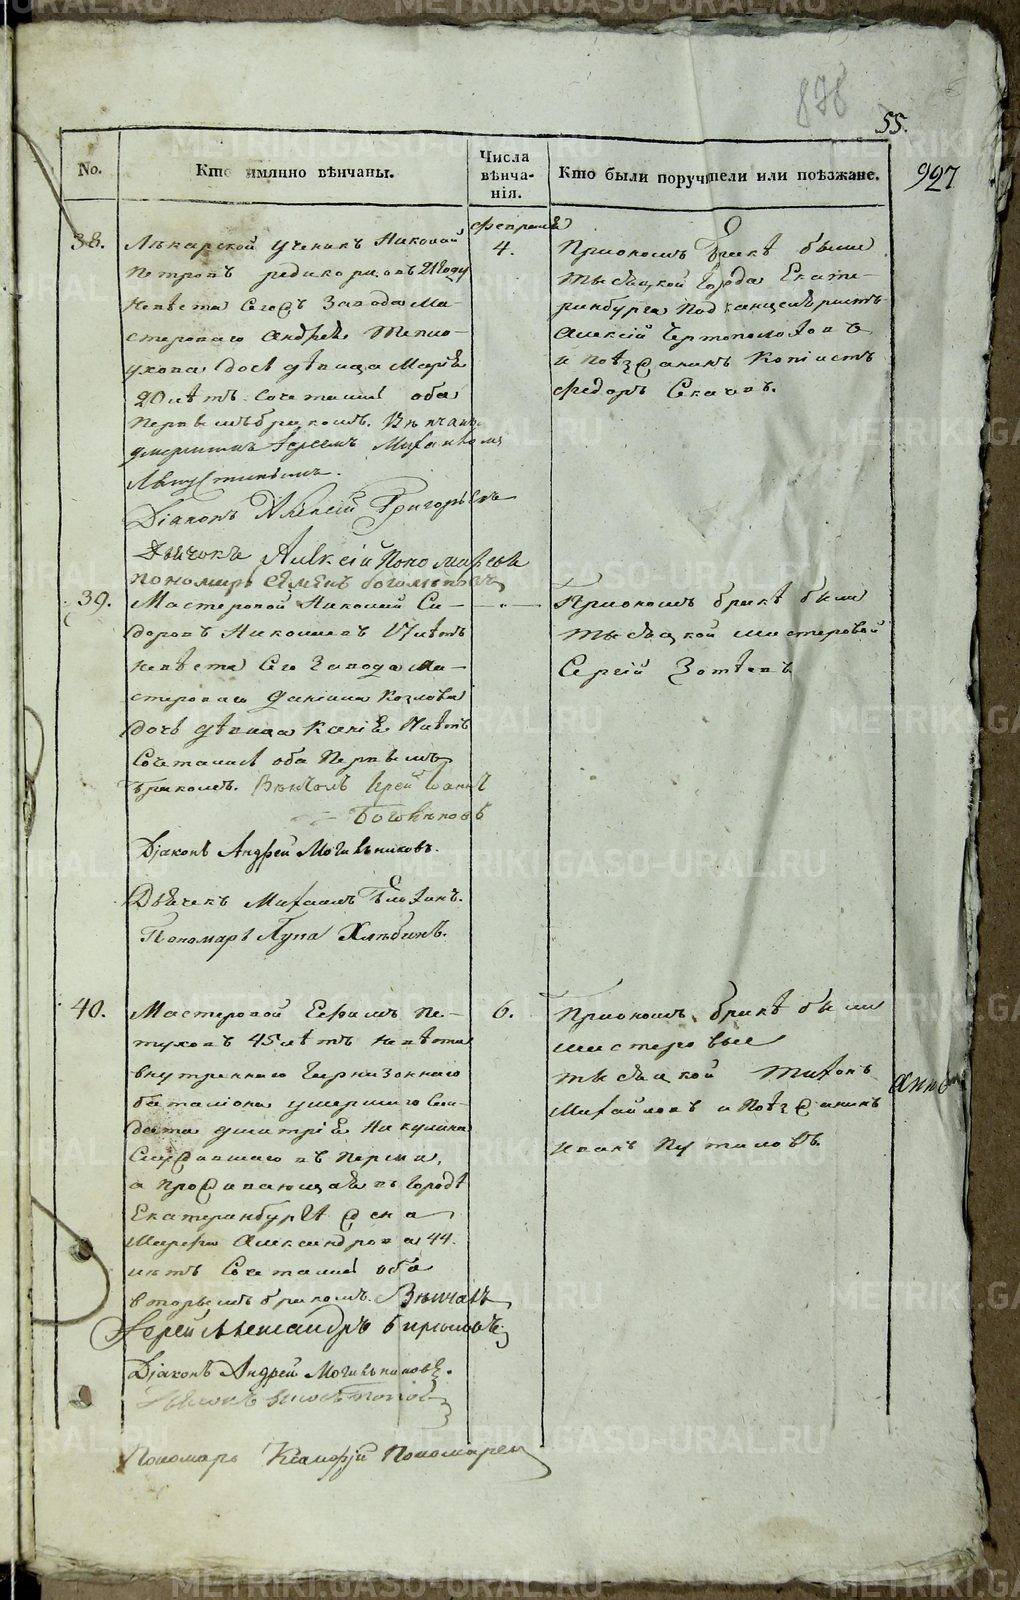 878
55.
927
No.
Кто имянно вѣнчаны.
Числа
вѣнча-
нія.
Кто были поручители или поѣзжане.
февраля
38.
Лѣкарской ученикъ Николай
Петровъ 21 году
невѣста сегожъ завода ма-
стероваго Андрея Тепло-
ухова дочь дѣвица Марія
20 лѣтъ сочетаны оба
первымъ бракомъ. Вѣнчаны
Іереемъ Михаиломъ
Діаконъ Алексій Григорьевъ
Дьячокъ Алексій Пономаревъ
пономарь Семенъ Боголѣповъ
4.
При ономъ бракѣ были
тысяцкой города Екате-
ринбурга подканцеляристъ
Алексій Чертополоховъ
и поѣзжанинъ копіистъ
Федоръ Секачевъ.
39.
Мастеровой Николай Си-
доровъ 17 лѣтъ
невѣста сего завода ма-
стероваго Даніила Козлова
дочь дѣвица Ксенія 17 лѣтъ
сочетаны оба первымъ
бракомъ. Вѣнчалъ Іерей Іоаннъ
Діаконъ Андрей Могильниковъ.
Дьячекъ Михаилъ
Пономарь Лупа Хлѣбинъ.
— „ —
При ономъ бракѣ были
тысяцкой мастеровой
Сергій Зотѣевъ
40.
Мастеровой Ефимъ Пе-
туховъ 45 лѣтъ невѣста
внутренняго гарнизоннаго
баталіона умершаго сол-
дата Дмитрія Никулина
служившаго въ Перми,
а проживающая въ городѣ
Екатеринбургѣ жена
Марфа Александрова 44.
лѣтъ сочетаны оба
вторымъ бракомъ. Вѣнчалъ
Іерей Александръ Бирюковъ
Діаконъ Андрей Могильниковъ.
Пономарь Ксанфій Пономаревъ
6.
При ономъ бракѣ были
мастеровые
тысяцкой Тихонъ
Михайловъ и поѣзжанинъ
Иванъ Путиловъ